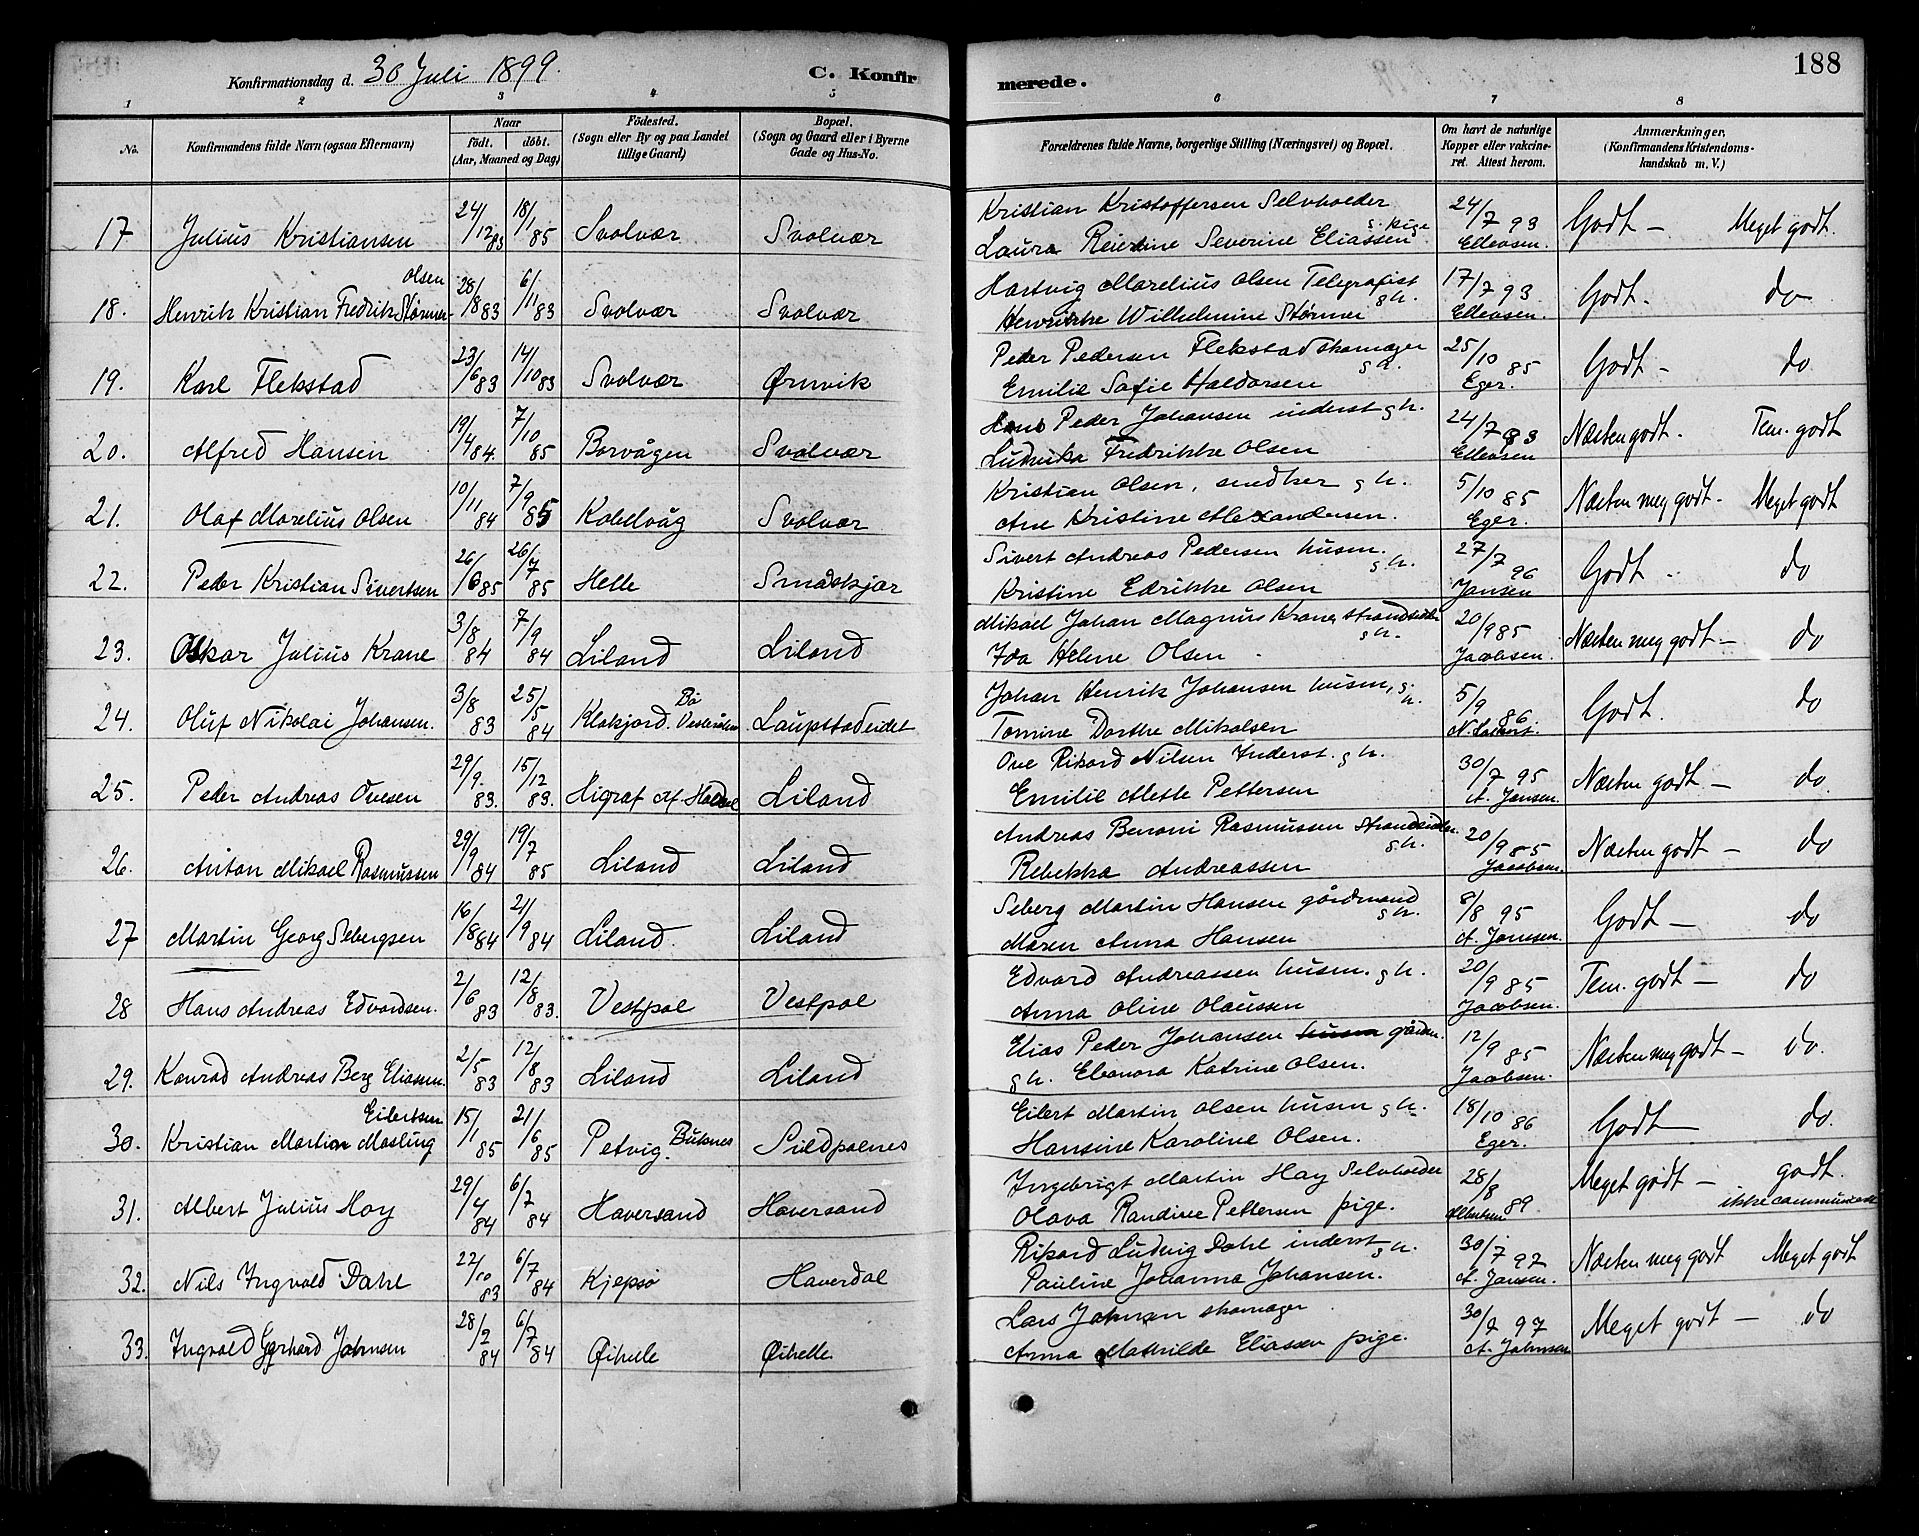 188
Konfirmationsdag d. 30 Juli 1899.
C. Konfirmerede.
1 2 3 4 5 6 7 8
No.
Konfirmandens fulde Navn (ogsaa Efternavn)
Naar
født. døbt.
(Aar, Maaned og Dag)
Fødested.
(Sogn eller By og paa Landet
tillige Gaard)
Bopæl.
(Sogn og Gaard eller i Byerne
Gade og Hus-No.
Forældrenes fulde Navne, borgerlige Stilling (Næringsvei) og Bopæl.
Om havt de naturlige
Kopper eller vakcine-
ret. Attest herom.
Anmærkninger.
(Konfirmandens Kristendoms-
kundskab m. V.)
17 Julius Kristiansen 24/12 83 18/1 85 Svolvær Svolvær Kristian Kristoffersen Selvhoeder 24/7 93 Godt - Meget godt.
Laura Severine Eliassen s. pige Ellevsen.
18. Henrik Kristian Fredrik Størmer Olsen 28/8 83 6/11 83 Svolvær Svolvær Hartvig Marelius Olsen Telegrafist 17/7 93 Godt. do
gh. Henrikke Wilhelmine Størmer Ellevsen.
19. Karl Flekstad 23/6 83 14/10 83 Svolvær Ørnvik Peder Pedersen Flekstad skomager 25/10 85 Godt - do
gh. Emilie Sofie Haldorsen Eger.
20. Alfred Hansen 19/4 84. 7/10 85 Borvågen Svolvær Hans Peder Johansen inderst gh. 24/7 93 Næsten godt. Tem. godt
Ludvika Fredrikke Olsen Ellevsen
21. Olaf Marelius Olsen 10/11 84 7/9 85 Kabelvåg Svolvær Kristian Olsen, snedker gh. 5/10 85 Næsten meg godt. Meget godt
Ane Kristine Alexandersen. Eger.
22. Peder Kristian Sivertsen 26/6 85 26/7 85 Helle Småskjær Sivert Andreas Pedersen husm. 27/7 96 Godt - do
gh. Kristine Edrikke Olsen Jansen
23. Oskar Julius Krane 3/8 84 7/9 84 Liland Liland Mikael Johan Magnus Krane, strandsidder 20/9 85 Næsten meg godt - do
gh. Ida Helene Olsen. Jacobsen.
24. Oluf Nikolai Johansen. 3/8 83 25/5 84 Klakjord. Bø Vesterålen Laupstadeidet Johan Henrik Johansen husm, gh. 5/9 86 Godt. do
Tomine Dorthe Mikalsen
25. Peder Andreas Ovesen 29/9. 83. 15/12 83. Higraf Liland Ove Rikard Nilsen Inderst. gh. 30/7 95 Næsten godt - do
Emilie Mette Pettersen A. Jansen.
26. Anton Mikael Rasmussen 29/9 84 19/7 85 Liland Liland Andreas Benoni Rasmussen Strandsidder 20/9 85 Næsten godt - do
gh. Rebekka Andreassen Jacobsen.
27 Martin Georg Sebergsen 16/8 84 21/9 84 Liland. Liland Seberg Martin Hansen gårdmand 8/8 95 Godt - do
gh. Maren Anna Hansen A. Jansen.
28 Hans Andreas Edvardsen. 2/6 83 12/8 83. Vestpol Vestpol Edvard Andreassen husm. gh. 20/9 85 Tem. godt - do
Anna Oline Olaussen Jacobsen.
29. Konrad Andreas Berg Eliassen. 2/5 83 12/8 83 Liland Liland Elias Peder Johansen husm gårdm. 12/9 85 Næsten meg godt - do.
gh. Eleonora Katrine Olsen. Jacobsen.
30. Kristian Martin Masling Eilertsen 15/1 85 21/6 85 Petvig. Buksnes Sildpolnes Eilert Martin Olsen husm gh. 18/10 86 Godt - do.
Hansine Karoline Olsen. Eger.
31. Albert Julius Hoy 29/4 84 6/7 84 Haversand Haversand Ingebrigt Martin Hay Selvhoeder 28/8 89 Meget godt - godt.
Olava Randine Pettersen pige. Albertsen ikke
32. Nils Ingvald Dahl 22/10 83 6/7 84 Kjepsø Haverdal Rikard Ludvig Dahl inderst gh. 30/7 97 Næsten meg godt Meget godt
Pauline Johanna Johansen. A. Jansen.
33. Ingvald Gerhard Johnsen 28/2 84 6/7 84 Øihelle Øihelle Lars Johnsen skomager 30/7 97 Meget godt - do
Anna Mathilde Eliassen pige. A. Johnsen